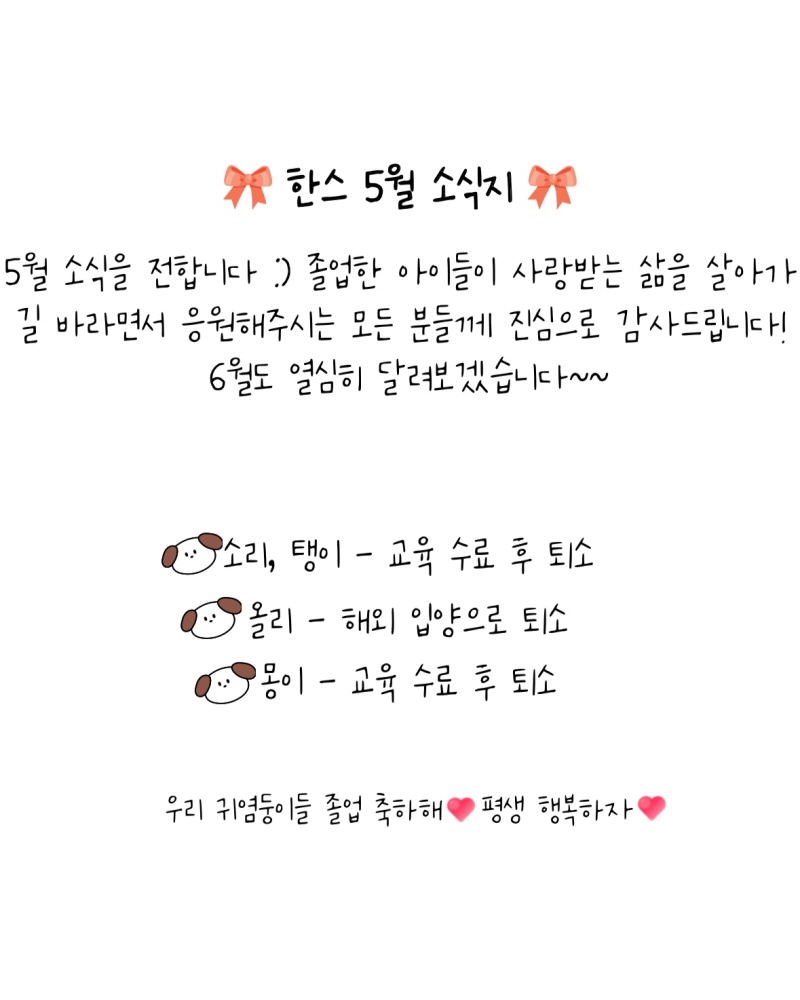 한스 5월 소식지
5월 소식을 전합니다 :) 졸업한 아이들이 사랑받는 삶을 살아가
길 바라면서 응원해주시는 모든 분들께 진심으로 감사드립니다!
6월도 열심히 달려보겠습니다~~
소리, 탱이 - 교육 수료 후 퇴소
올리 - 해외 입양으로 퇴소
몽이 - 교육 수료 후 퇴소
우리 귀염둥이들 졸업 축하해❤ 평생 행복하자❤